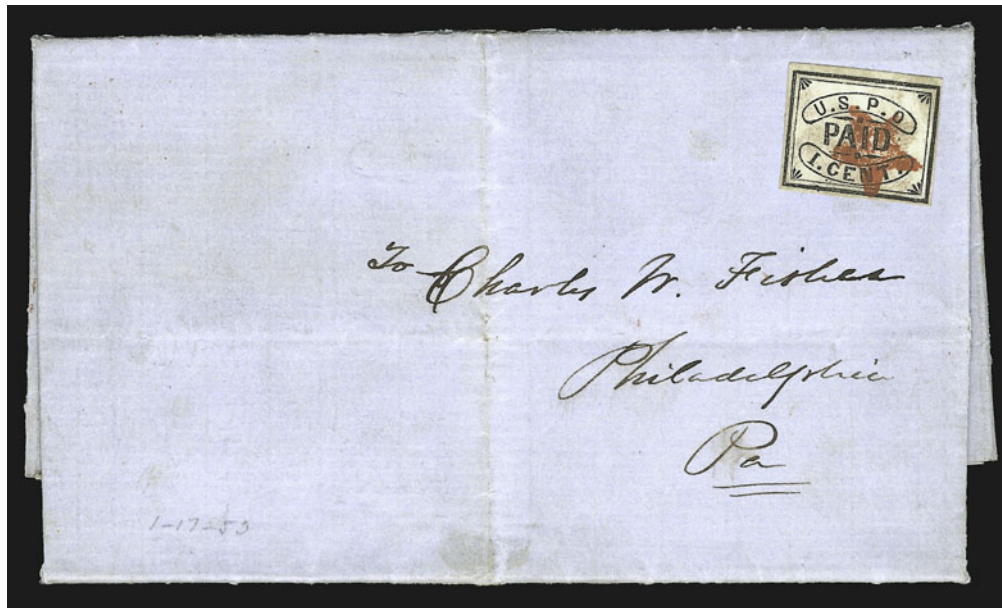 U.S.P.O
PAID
1.CENT.
To Charles W. Fisher
Philadelphia
Pa
1-17-53